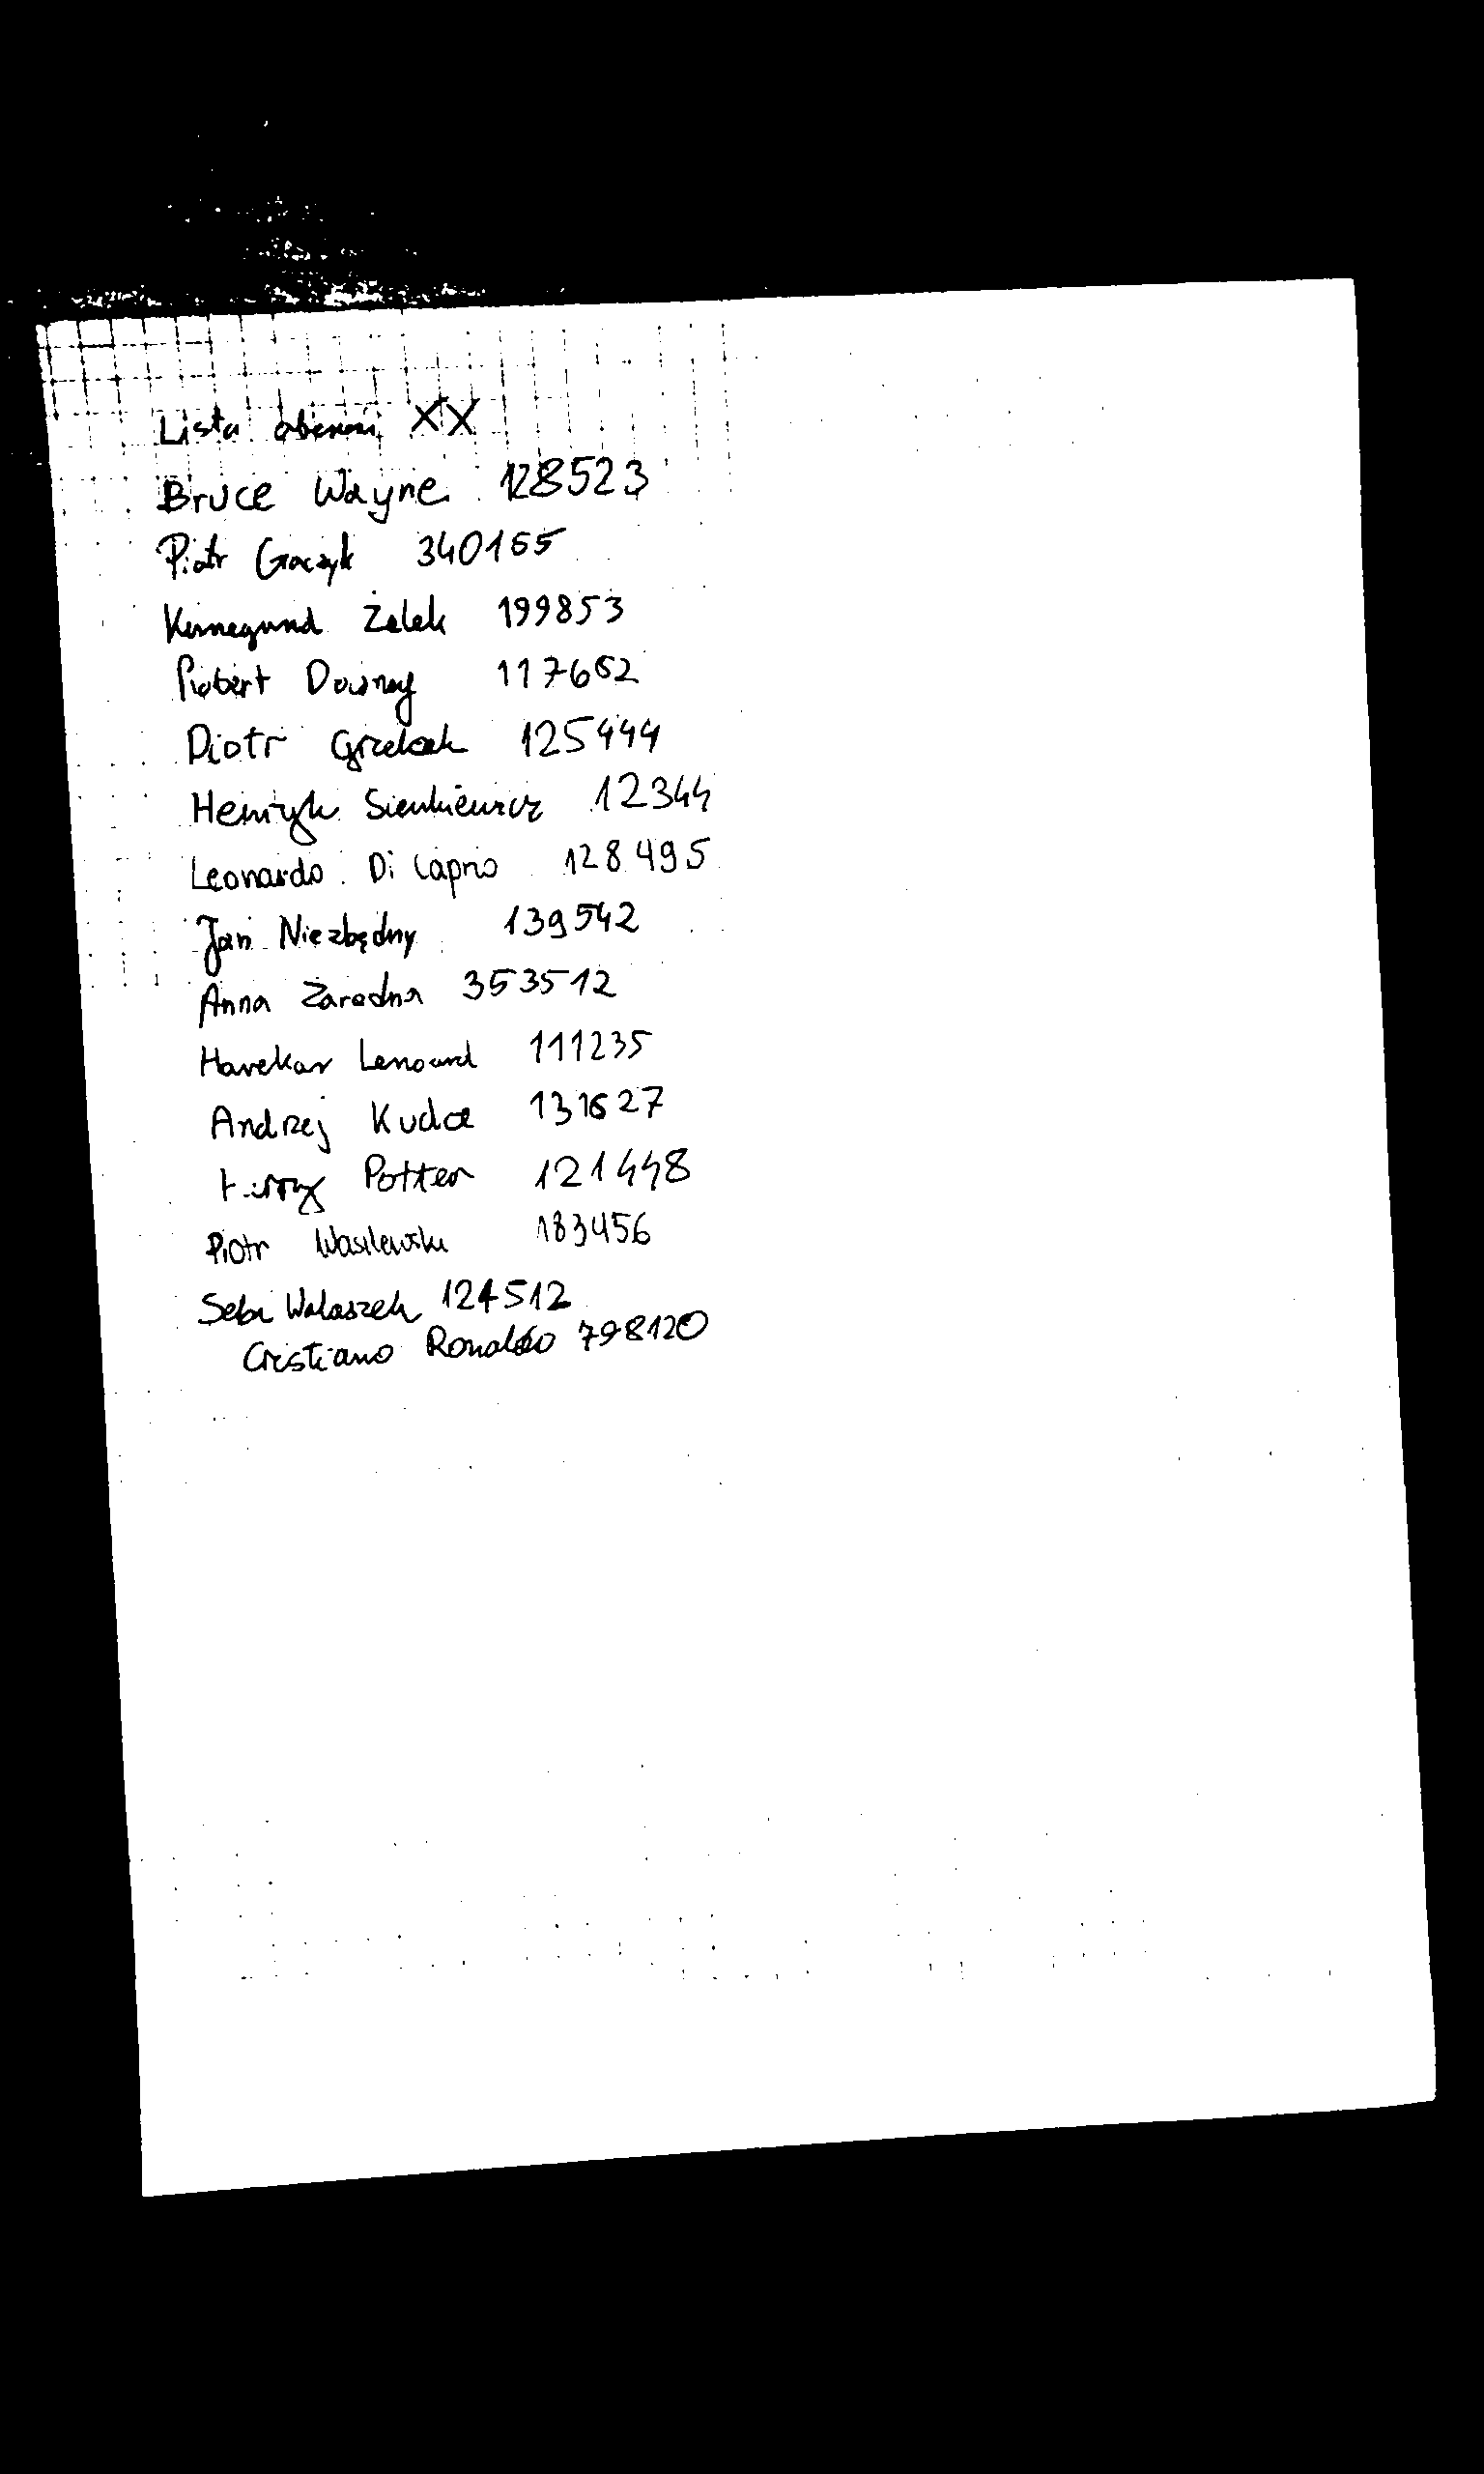 Lista obecności XX
Bruce Wayne 128523
Piotr Graczyk 340165
Kunegund Żelek 199853
Robert Downey 117662
Piotr Grzelak 125444
Henryk Sienkiewicz 12344
Leonardo Di Caprio 128495
Jan Niezbędny 139542
Anna Zaradna 353512
Lenoard 111235
Andrzej Kudra 131627
Potter 121448
Piotr Wasilewski 183456
Seba Walaszek 124512
Cristiano Ronaldo 798120